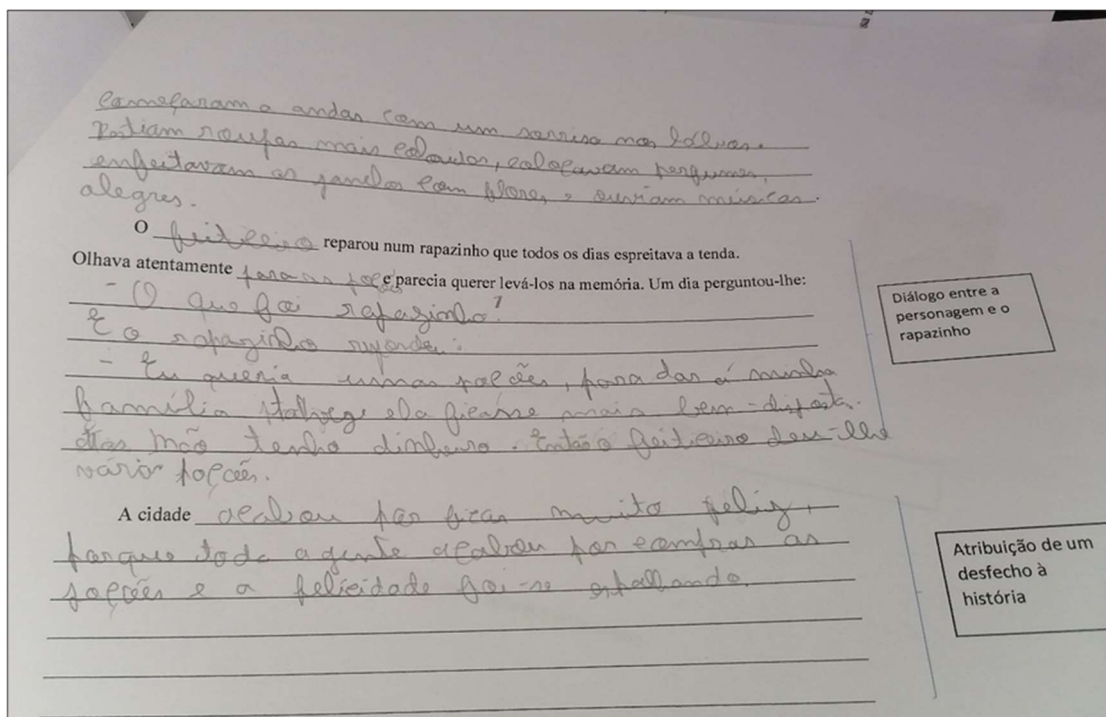 começaram a andar com um sorriso nos lábios.
Vestiam roupas mais coloridas, colocavam perfumes,
enfeitavam as janelas com flores, e ouviam músicas
alegres.
O feiticeiro reparou num rapazinho que todos os dias espreitava a tenda.
Olhava atentamente para as poções e parecia querer levá-los na memória. Um dia perguntou-lhe:
- O que foi rapazinho?
E o rapazinho responde:
- Eu queria umas poções, para dar á minha
família talvez ela ficasse mais bem-disposta.
Mas não tenho dinheiro. Então o feiticeiro deu-lhe
vários poções.
A cidade acabou por ficar muito feliz,
porque toda a gente acabou por comprar as
poções e a felicidade foi-se espalhando.
Diálogo entre a
personagem e o
rapazinho
Atribuição de um
desfecho à
história